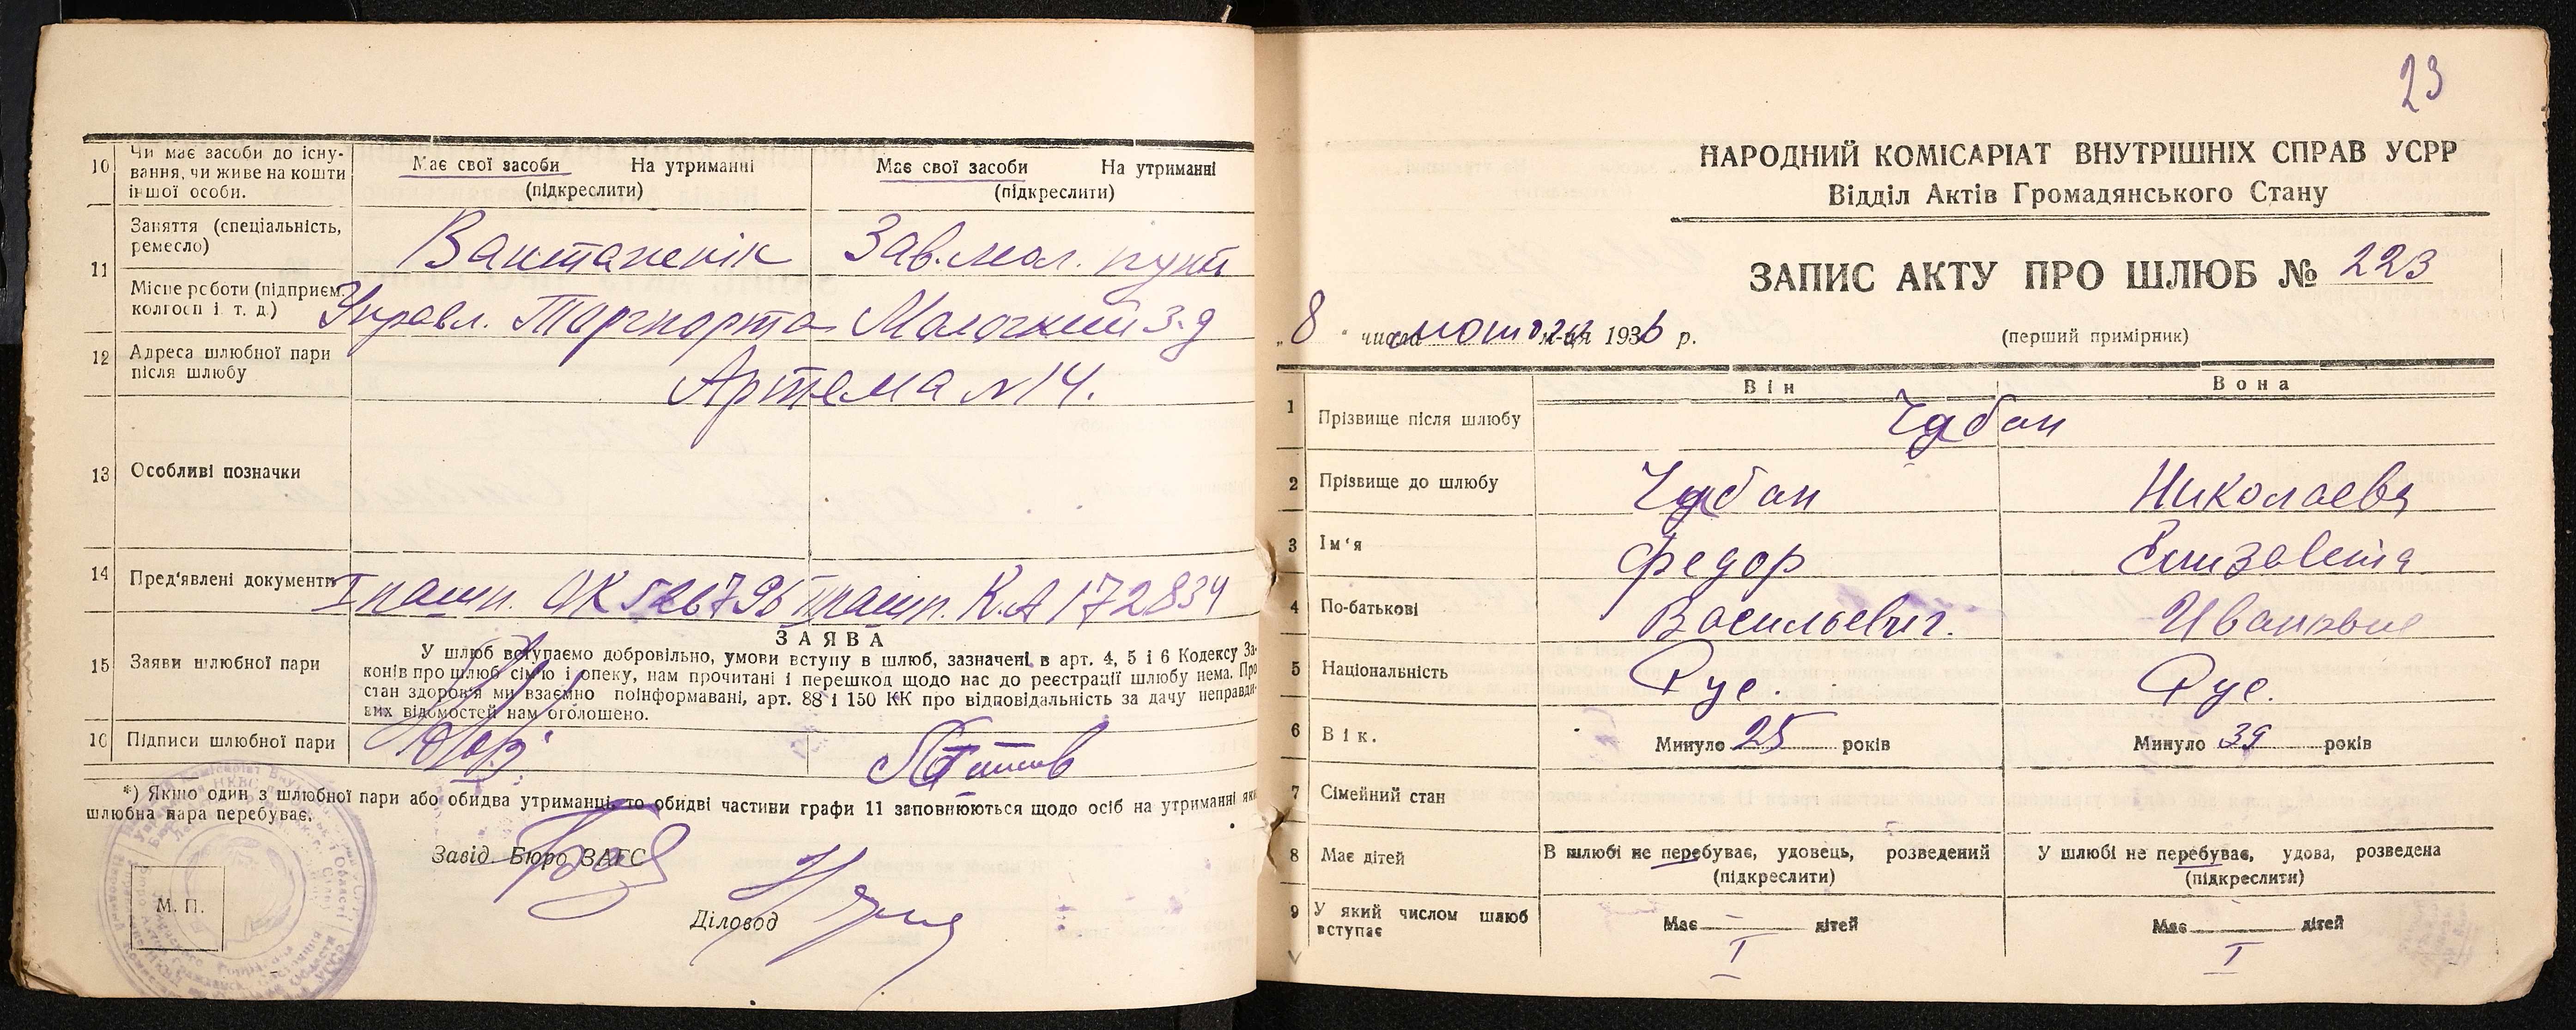 10 Чи має засоби до існу-
вання, чи живе на кошти
іншої особи.
Має свої засоби На утриманні
(підкреслити)
Має свої засоби На утриманні
(підкреслити)
11 Заняття (спеціальність,
ремесло)
Вантажник
Зав. мол. пункт
Місце роботи (підприєм.
колгосп і т. д.)
Управл. Торгпорта
Молочний з-д
12 Адреса шлюбної пари
після шлюбу
Артема № 14.
13 Особливі позначки
14 Пред'явлені документи
I пашп. ОК 526796 II пашп. К.А 172834
15 Заяви шлюбної пари
ЗАЯВА
У шлюб вступаємо добровільно, умови вступу в шлюб, зазначені в арт. 4, 5 і 6 Кодексу За-
конів про шлюб сім'ю і опеку, нам прочитані і перешкод щодо нас до реєстрації шлюбу нема. Про
стан здоров'я ми взаємно поінформавані, арт. 88 і 150 КК про відповідальність за дачу неправди-
вих відомостей нам оголошено.
16 Підписи шлюбної пари
*) Якщо один з шлюбної пари або обидва утриманці, то обидві частини графи 11 заповнюються щодо осіб на утриманні яки
шлюбна пара перебуває.
Завід. Бюро ЗАГС
М. П.
Діловод
23
НАРОДНИЙ КОМІСАРІАТ ВНУТРІШНІХ СПРАВ УСРР
Відділ Актів Громадянського Стану
ЗАПИС АКТУ ПРО ШЛЮБ № 223
„8 числа лютого м-ця 1936 р.
(перший примірник)
Він Вона
1 Прізвище після шлюбу Чабан
2 Прізвище до шлюбу Чабан Николаева
3 Ім'я Федор Елизавета
4 По-батькові Васильевич. Ивановна
5 Національність Рус. Рус.
6 Вік. Минуло 25 років Минуло 39 років
7 Сімейний стан
8 Має дітей
В шлюбі не перебуває, удовець, розведений
(підкреслити)
У шлюбі не перебуває, удова, розведена
(підкреслити)
9 У який числом шлюб
вступає
Має — дітей
I
Має — дітей
I